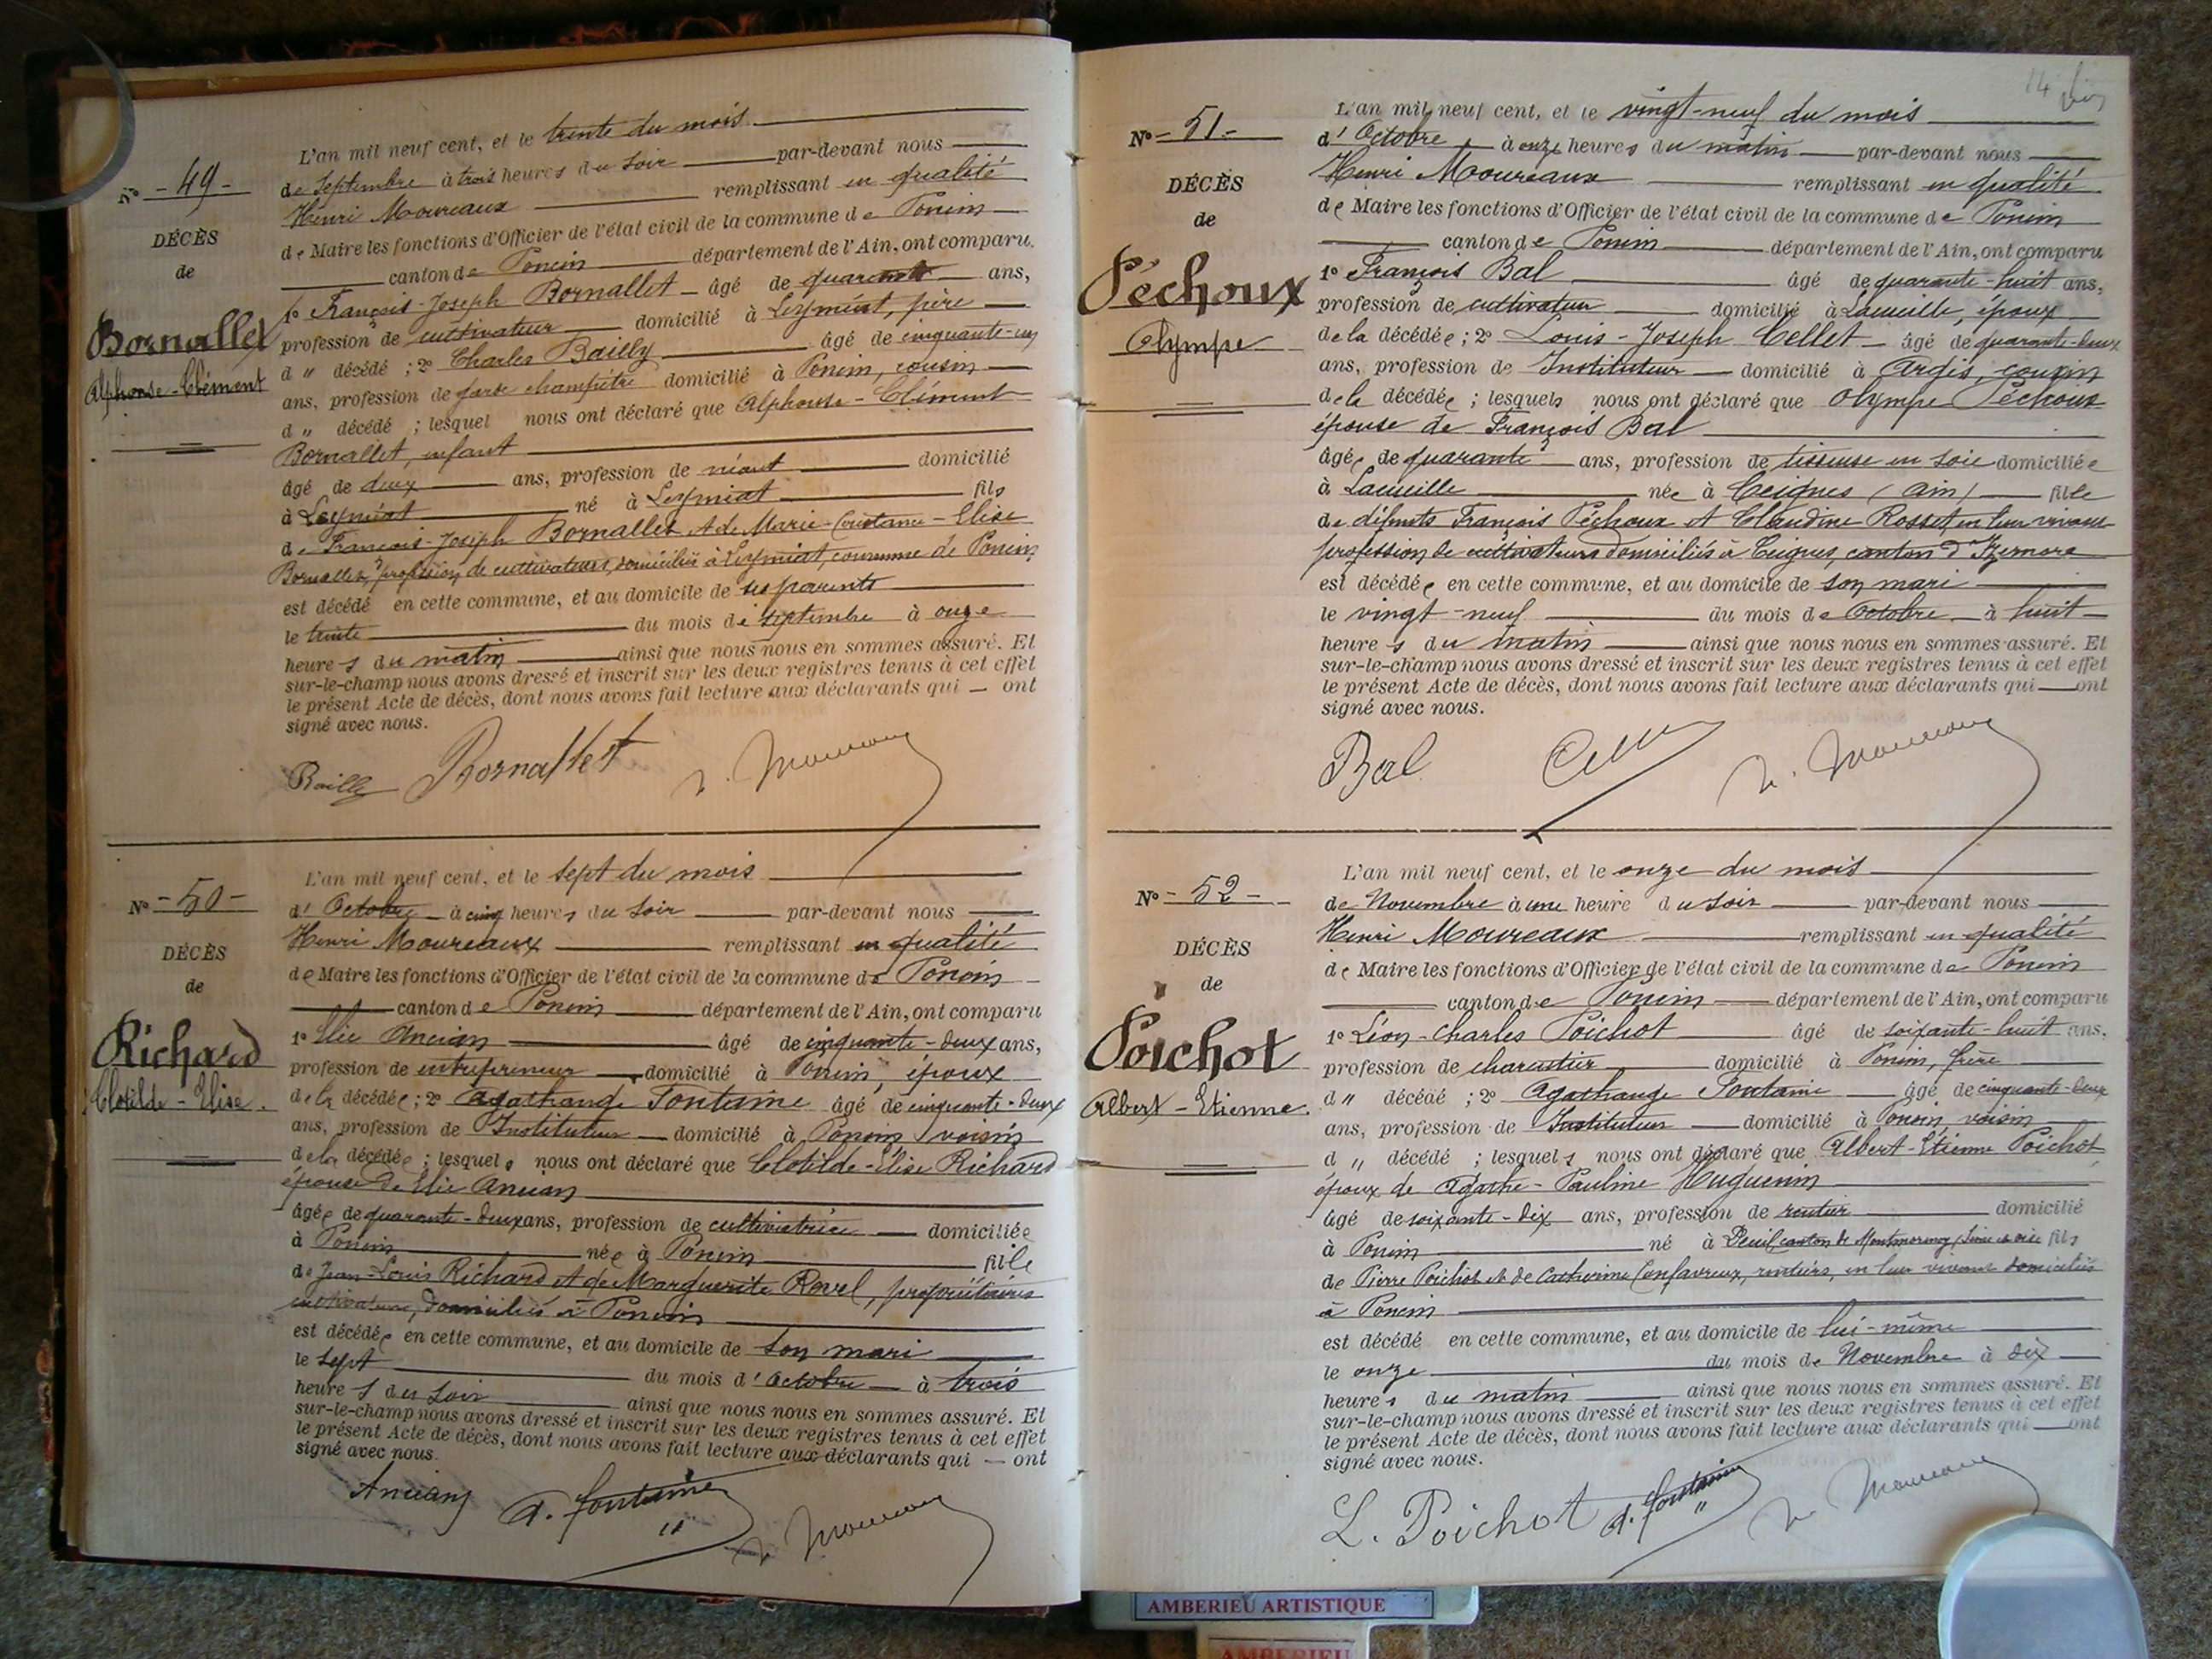 N° - 49 -
DÉCÈS
de
Bornallet
Alphonse-Clément
L'an mil neuf cent, et le trente du mois
de Septembre à trois heures du soir par-devant nous
Henri Moureaux remplissant en qualité
de Maire les fonctions d'Officier de l'état civil de la commune de Poncin
canton de Poncin département de l'Ain, ont comparu
1° François-Joseph Bornallet âgé de quarante ans,
profession de cultivateur domicilié à Leymiat, père
d " décédé ; 2° Charles Bailly âgé de cinquante-un
ans, profession de garde champêtre domicilié à Poncin, cousin
d " décédé ; lesquel nous ont déclaré que Alphonse-Clément
Bornallet, enfant
âgé de deux ans, profession de néant domicilié
à Leymiat né à Leymiat fils
de François-Joseph Bornallet et de Marie-Constance-Elise
Bornallet, profession de cultivateurs, domiciliés à Leymiat, commune de Poncin
est décédé en cette commune, et au domicile de ses parents
le trente du mois de septembre à onze
heures du matin ainsi que nous nous en sommes assuré. Et
sur-le-champ nous avons dressé et inscrit sur les deux registres tenus à cet effet
le présent Acte de décès, dont nous avons fait lecture aux déclarants qui ont
signé avec nous.
Bailly Bornallet
N° - 50 -
DÉCÈS
de
Richard
Clotilde-Elise.
L'an mil neuf cent, et le sept du mois
d'Octobre à cinq heures du soir par-devant nous
Henri Moureaux remplissant en qualité
de Maire les fonctions d'Officier de l'état civil de la commune de Poncin
canton de Poncin département de l'Ain, ont comparu
1° Elie Ancian âgé de cinquante-deux ans,
profession de entrepreneur domicilié à Poncin, époux
de la décédée ; 2° Agathange Fontaine âgé de cinquante-deux
ans, profession de Instituteur domicilié à Poncin, voisin
de la décédée ; lesquels nous ont déclaré que Clotilde-Elise Richard
épouse de Elie Ancian
âgée de quarante-deux ans, profession de cultivatrice domiciliée
à Poncin née à Poncin fille
de Jean-Louis Richard et de Marguerite Ravel, propriétaires
cultivateurs, domiciliés à Poncin
est décédée en cette commune, et au domicile de son mari
le sept du mois d'Octobre à trois
heures du soir ainsi que nous nous en sommes assuré. Et
sur-le-champ nous avons dressé et inscrit sur les deux registres tenus à cet effet
le présent Acte de décès, dont nous avons fait lecture aux déclarants qui ont
signé avec nous.
Ancian A. Fontaine
14
N° - 51 -
DÉCÈS
de
Péchoux
Olympe
L'an mil neuf cent, et le vingt-neuf du mois
d'Octobre à onze heures du matin par-devant nous
Henri Moureaux remplissant en qualité
de Maire les fonctions d'Officier de l'état civil de la commune de Poncin
canton de Poncin département de l'Ain, ont comparu
1° François Bal âgé de quarante-huit ans,
profession de cultivateur domicilié à Lacueille, époux
de la décédée ; 2° Louis-Joseph Cellet âgé de quarante-deux
ans, profession de Instituteur domicilié à Argis, cousin
de la décédée ; lesquels nous ont déclaré que Olympe Péchoux
épouse de François Bal
âgée de quarante ans, profession de tisseuse en soie domiciliée
à Lacueille née à Ceignes (Ain) fille
de défunts François Péchoux et Claudine Rosset, en leur vivant
profession de cultivateurs domiciliés à Ceignes, canton d'Izernore
est décédée en cette commune, et au domicile de son mari
le vingt-neuf du mois de Octobre à huit
heures du matin ainsi que nous nous en sommes assuré. Et
sur-le-champ nous avons dressé et inscrit sur les deux registres tenus à cet effet
le présent Acte de décès, dont nous avons fait lecture aux déclarants qui ont
signé avec nous.
Bal
N° - 52 -
DÉCÈS
de
Poichot
Albert-Etienne.
L'an mil neuf cent, et le onze du mois
de Novembre à une heure du soir par-devant nous
Henri Moureaux remplissant en qualité
de Maire les fonctions d'Officier de l'état civil de la commune de Poncin
canton de Poncin département de l'Ain, ont comparu
1° Léon-Charles Poichot âgé de soixante-huit ans,
profession de charcutier domicilié à Poncin, frère
d " décédé ; 2° Agathange Fontaine âgé de cinquante-deux
ans, profession de Instituteur domicilié à Poncin, voisin
d " décédé ; lesquels nous ont déclaré que Albert-Etienne Poichot
époux de Agathe-Pauline Huguenin
âgé de soixante-dix ans, profession de rentier domicilié
à Poncin né à Deuil, canton de Montmorency, Seine et oise fils
de Pierre Poichot et de Catherine Confavreux, rentiers, en leur vivant domiciliés
à Poncin
est décédé en cette commune, et au domicile de lui-même
le onze du mois de Novembre à dix
heures du matin ainsi que nous nous en sommes assuré. Et
sur-le-champ nous avons dressé et inscrit sur les deux registres tenus à cet effet
le présent Acte de décès, dont nous avons fait lecture aux déclarants qui ont
signé avec nous.
L. Poichot A. Fontaine
AMBERIEU ARTISTIQUE
AMBERIEU